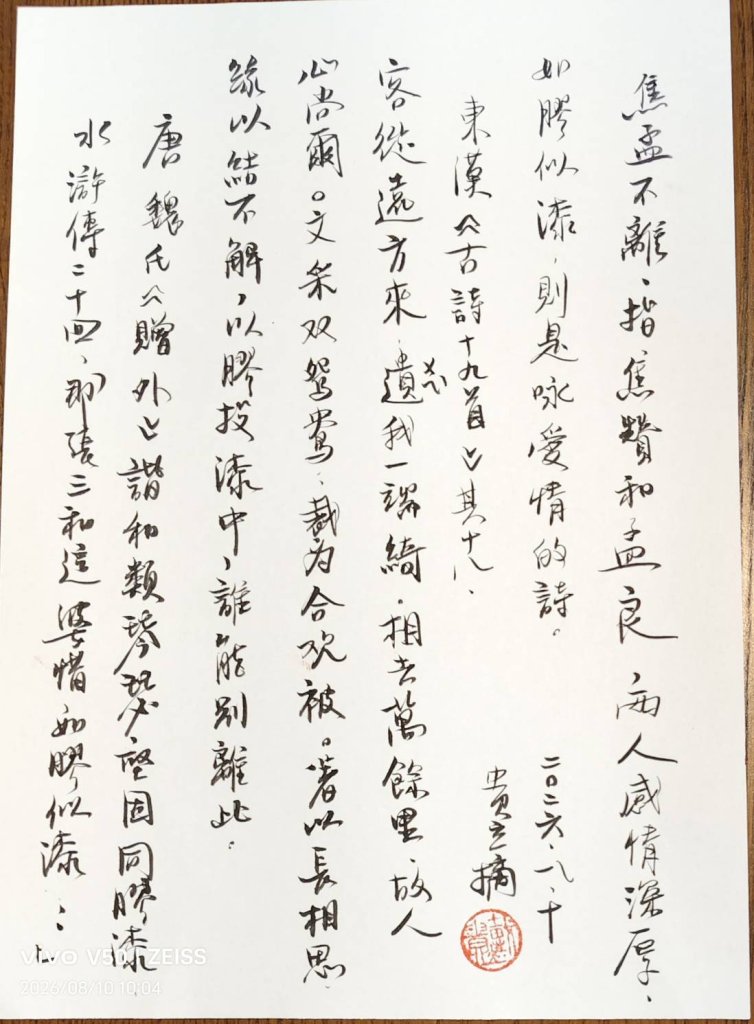 焦孟不離、指焦贊和孟良、兩人感情深厚、
如膠似漆，則是咏愛情的詩。
東漢《古詩十九首》其十八、
客從遠方來，遺我一端綺，相去萬餘里，故人
心尚爾。文采双鴛鴦，裁为合欢被。著以長相思
緣以結不解，以膠投漆中，誰能别離此。
唐魏氏《贈外》諧和類琴瑟，堅固同膠漆
水滸傳二十回，那張三和這婆惜如膠似漆
二〇二六.八.十
費立摘
vivo V50 | ZEISS
2026/08/10 10:04